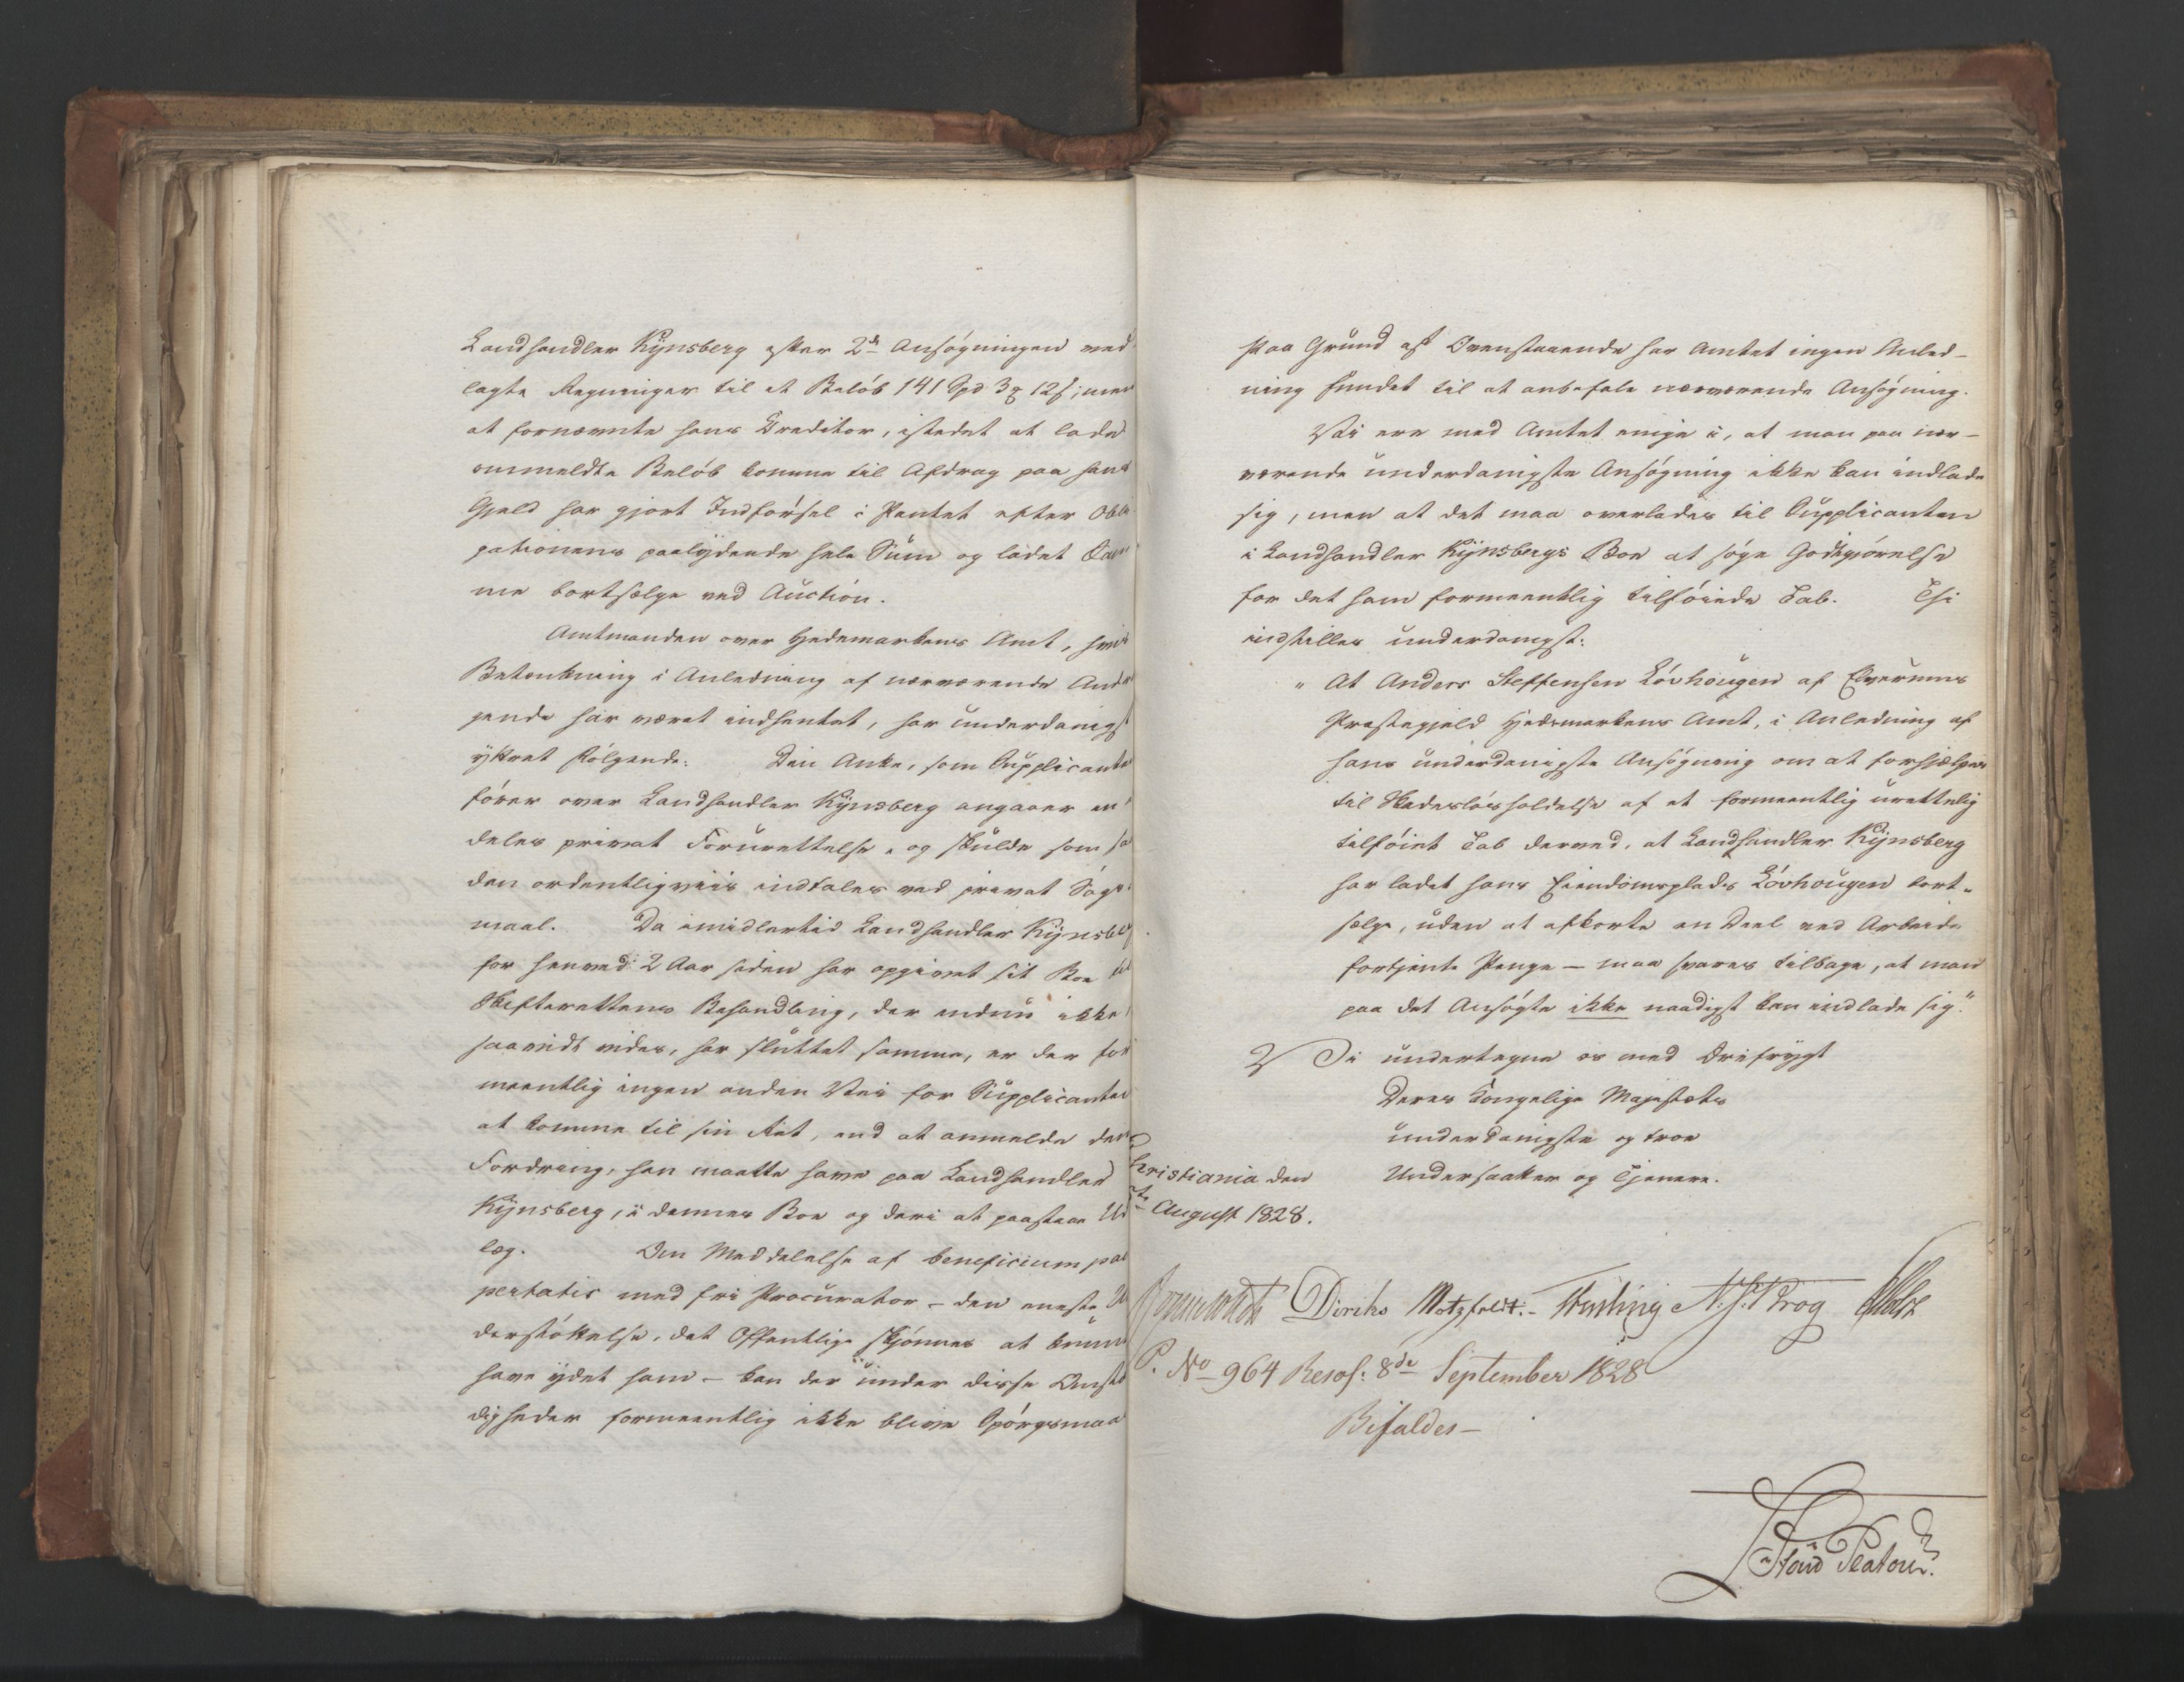 Landhandler Kÿnsberg efter 2de Ansøgningen ved
lagte Regninger til et Beløb 141 Spd 3 12 s; men
at fornævnte hans Creditor, istedet at lade
ommeldte Beløb komme til Afdrag paa hans
Gjeld har gjort Indførsel i Pantet efter Obli
gationens paalydende hele Sum og ladet
me bortsælge ved Auction.
Amtmanden over Hedemarkens Amt, hvis
Betænkning i Anledning af nærværende Andra
gende har været indhentet, har underdanigst
yttret følgende: Den Anke, som Supplicanten
fører over Landhandler Kÿnsberg angaaer en
deles privat Forurettelse, og skulde som saa
dan ordentligviis indtales ved privat Søgs
maal. Da imidlertid Landhandler Kÿnsberg
for henved 2 Aar siden har opgivet sit Boe til
Skifterettens Behandling, der endnu ikke
saavidt vides, har sluttet samme, er der for
meentlig ingen anden Vei for Supplicanten
at komme til sin Ret, end at anmelde den
Fordring, han maatte have paa Landhandler
Kÿnsberg, i dennes Boe og deri at paastaae Ud
læg. Om Meddelelse af beneficium pau
pertatis med fri Procurator – den eneste Un
derstøttelse, det Offentlige skjønnes at kunne
have ydet ham – kan der under disse Omstæn
digheder formeentlig ikke blive Spørgsmaal
Paa Grund af Ovenstaaende har Amtet ingen Anled-
ning fundet til at anbefale nærværende Ansøgning.
Vi ere med Amtet enige i, at man paa nær-
værende underdanigste Ansøgning ikke kan indlade
sig, men at det maa overlades til Supplicanten
i Landhandler Kÿnsbergs Boe at søge Godtgjørelse
for det ham formeentlig tilføiede Tab. Thi
indstilles underdanigst:
"At Anders Steffensen Løvhougen af Elverums
Præstegjeld Hedemarkens Amt, i Anledning af
hans underdanigste Ansøgning om at forhjelpes
til Skadesløsholdelse af et formeentlig urettelig
tilføiet Tab derved, at Landhandler Kÿnsberg
har ladet hans Eiendomsplads Løvhougen bort-
sælge, uden at afkorte en Deel ved Arbeide
fortjente Penge – maa svares tilbage, at man
paa det Ansøgte ikke naadigst kan indlade sig."
Vi undertegne os med Ærefrygt
Deres Kongelige Majestæts
underdanigste og troe
Undersaatter og Tjenere.
Christiania den
August 1828.
Diriks Motzfeldt. N. J. Krog
P. No 964 Resol: 8de September 1828
Bifaldes –